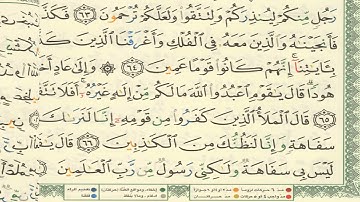 رَجُلٍ مِّنكُمْ لِيُنذِرَكُمْ وَلِتَتَّقُوا۟ وَلَعَلَّكُمْ تُرْحَمُونَ ٦٣ فَكَذَّ
فَأَنجَيْنَٰهُ وَٱلَّذِينَ مَعَهُۥ فِى ٱلْفُلْكِ وَأَغْرَقْنَا ٱلَّذِينَ كَذَّ
بِـَٔايَٰتِنَآ إِنَّهُمْ كَانُوا۟ قَوْمًا عَمِينَ ٦٤ وَإِلَىٰ عَادٍ
هُودًا قَالَ يَٰقَوْمِ ٱعْبُدُوا۟ ٱللَّهَ مَا لَكُم مِّنْ إِلَٰهٍ غَيْرُهُۥٓ أَفَلَا تَتَّ
٦٥ قَالَ ٱلْمَلَأُ ٱلَّذِينَ كَفَرُوا۟ مِن قَوْمِهِۦٓ إِنَّا لَنَرَىٰكَ
سَفَاهَةٍ وَإِنَّا لَنَظُنُّكَ مِنَ ٱلْكَٰذِبِينَ ٦٦ قَالَ يَٰقَ
لَيْسَ بِى سَفَاهَةٌ وَلَٰكِنِّى رَسُولٌ مِّن رَّبِّ ٱلْعَٰلَمِينَ